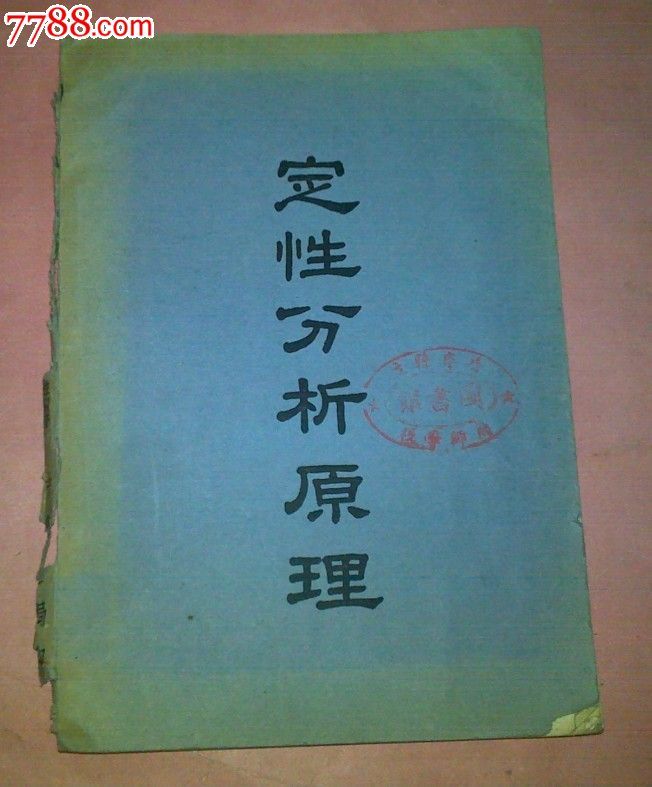 7788.com
定性分析原理